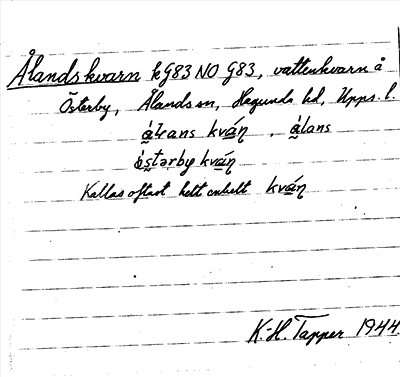 Ålandskvarn kG83 NO G83, vattenkvarn å
Österby, Ålands sn, Hagunda hd, Upps. l.
å̀lans kván̥ , å̀lans
ö̀stərby kván̥
Kallas oftast helt enkelt kván̥
K.-H. Tapper 1944.